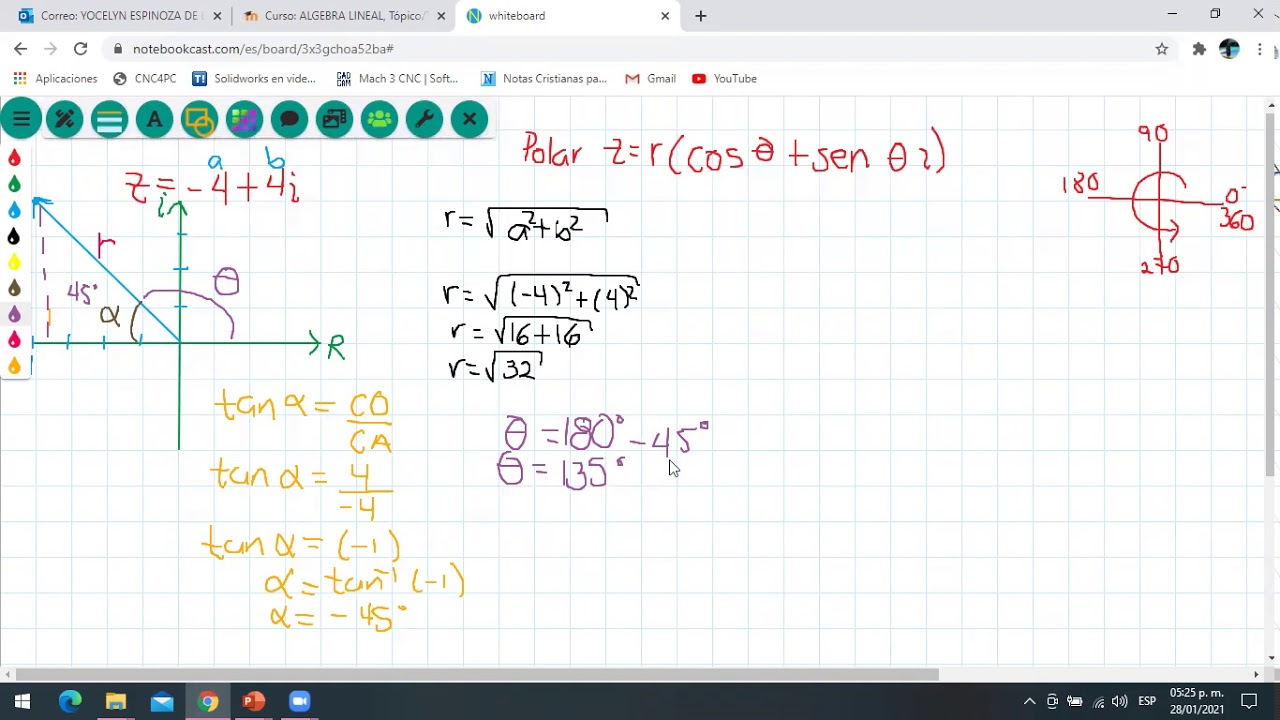 Correo: YOCELYN ESPINOZA DE L
Curso: ALGEBRA LINEAL, Tópico/
whiteboard
notebookcast.com/es/board/3x3gchoa52ba#
Aplicaciones
CNC4PC
Solidworks en vide...
Mach 3 CNC | Soft...
Notas Cristianas pa...
Gmail
YouTube
Polar z=r(cos θ + sen θ i)
a b
z = -4 + 4i
i
r
45°
α
θ
R
r = √a²+b²
r = √(-4)²+(4)²
r = √16+16
r = √32
90
180
0°
360
270
tan α = CO/CA
tan α = 4/-4
tan α = (-1)
α = tan⁻¹ (-1)
α = -45°
θ = 180° - 45°
θ = 135°
ESP
05:25 p. m.
28/01/2021